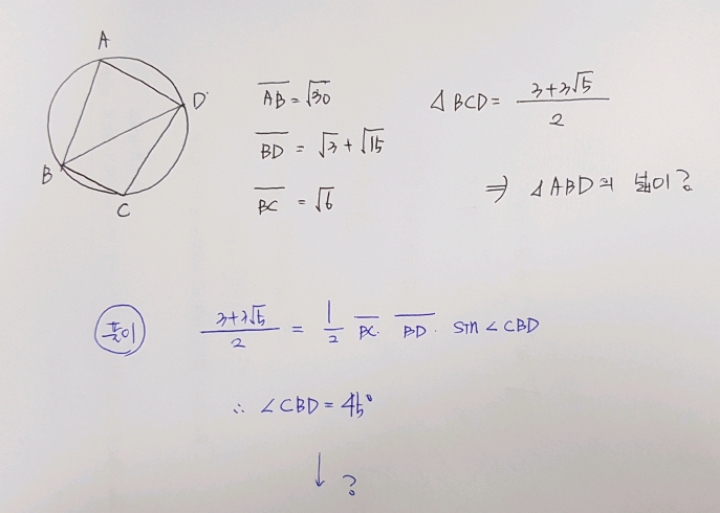 A
D
B
C
AB = √30
BD = √3 + √15
BC = √6
△BCD = (3+3√5)/2
⇒ △ABD의 넓이?
풀이
(3+3√5)/2 = 1/2 BC · BD · sin∠CBD
∴ ∠CBD = 45°
↓ ?